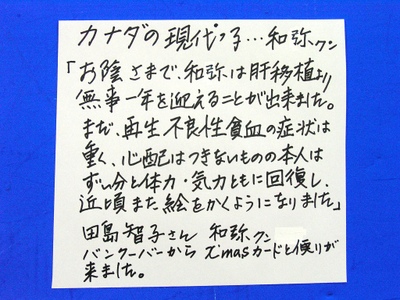 カナダの現代っ子…和弥クン
「お陰さまで、和弥は肝移植より
無事一年を迎えることが出来ました。
まだ、再生不良性貧血の症状は
重く、心配はつきないものの本人は
ずい分と体力・気力ともに回復し、
近頃また絵をかくようになりました」
田島智子さん 和弥クン
バンクーバーからX'masカードと便りが
来ました。